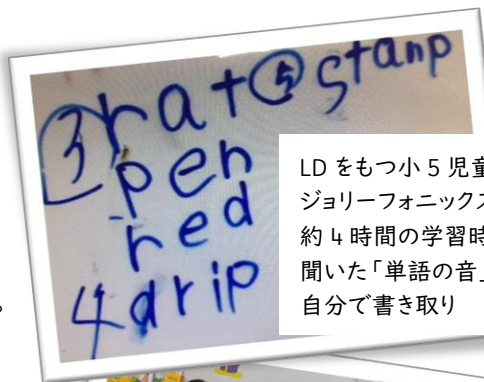 ③ rat ⑤ stanp
pen
red
4 drip
LD をもつ小 5 児童
ジョリーフォニックス
約 4 時間の学習時
聞いた「単語の音」
自分で書き取り
。